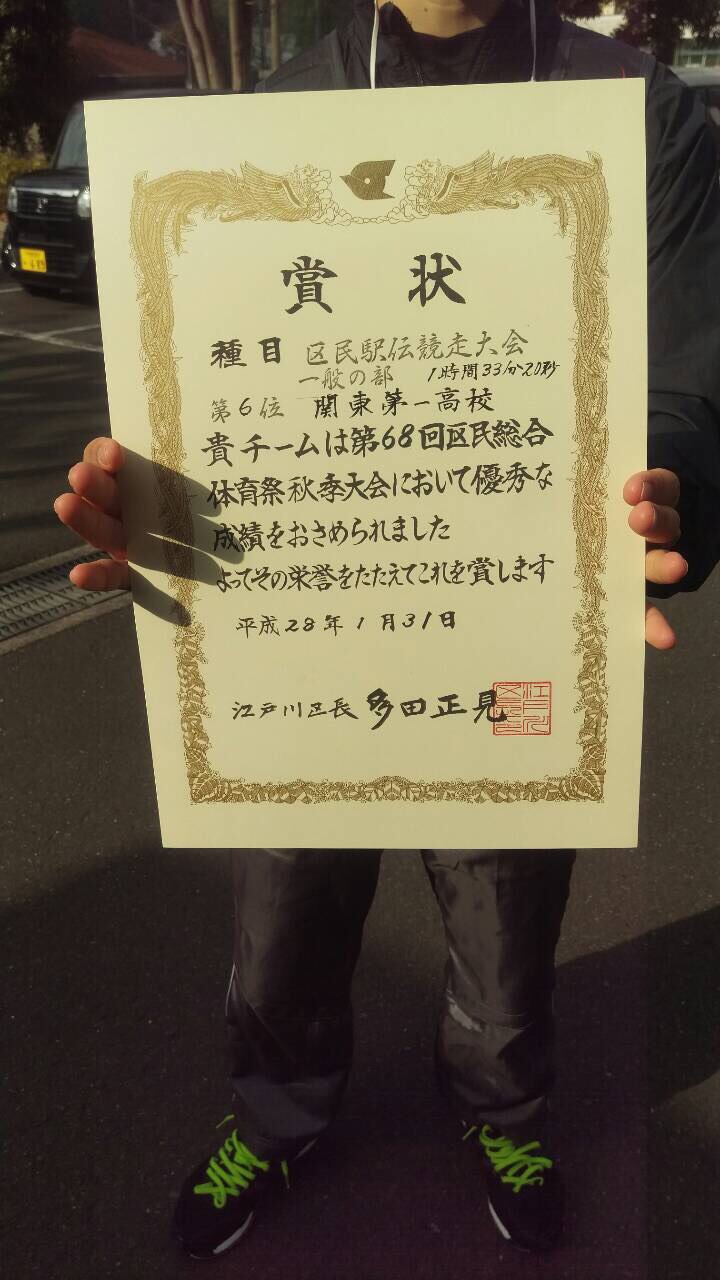 賞状
種目 区民駅伝競走大会
一般の部 1時間33分20秒
第6位 関東第一高校
貴チームは第68回区民総合
体育祭秋季大会において優秀な
成績をおさめられました
よってその栄誉をたたえてこれを賞します
平成28年1月31日
江戸川区長 多田正見